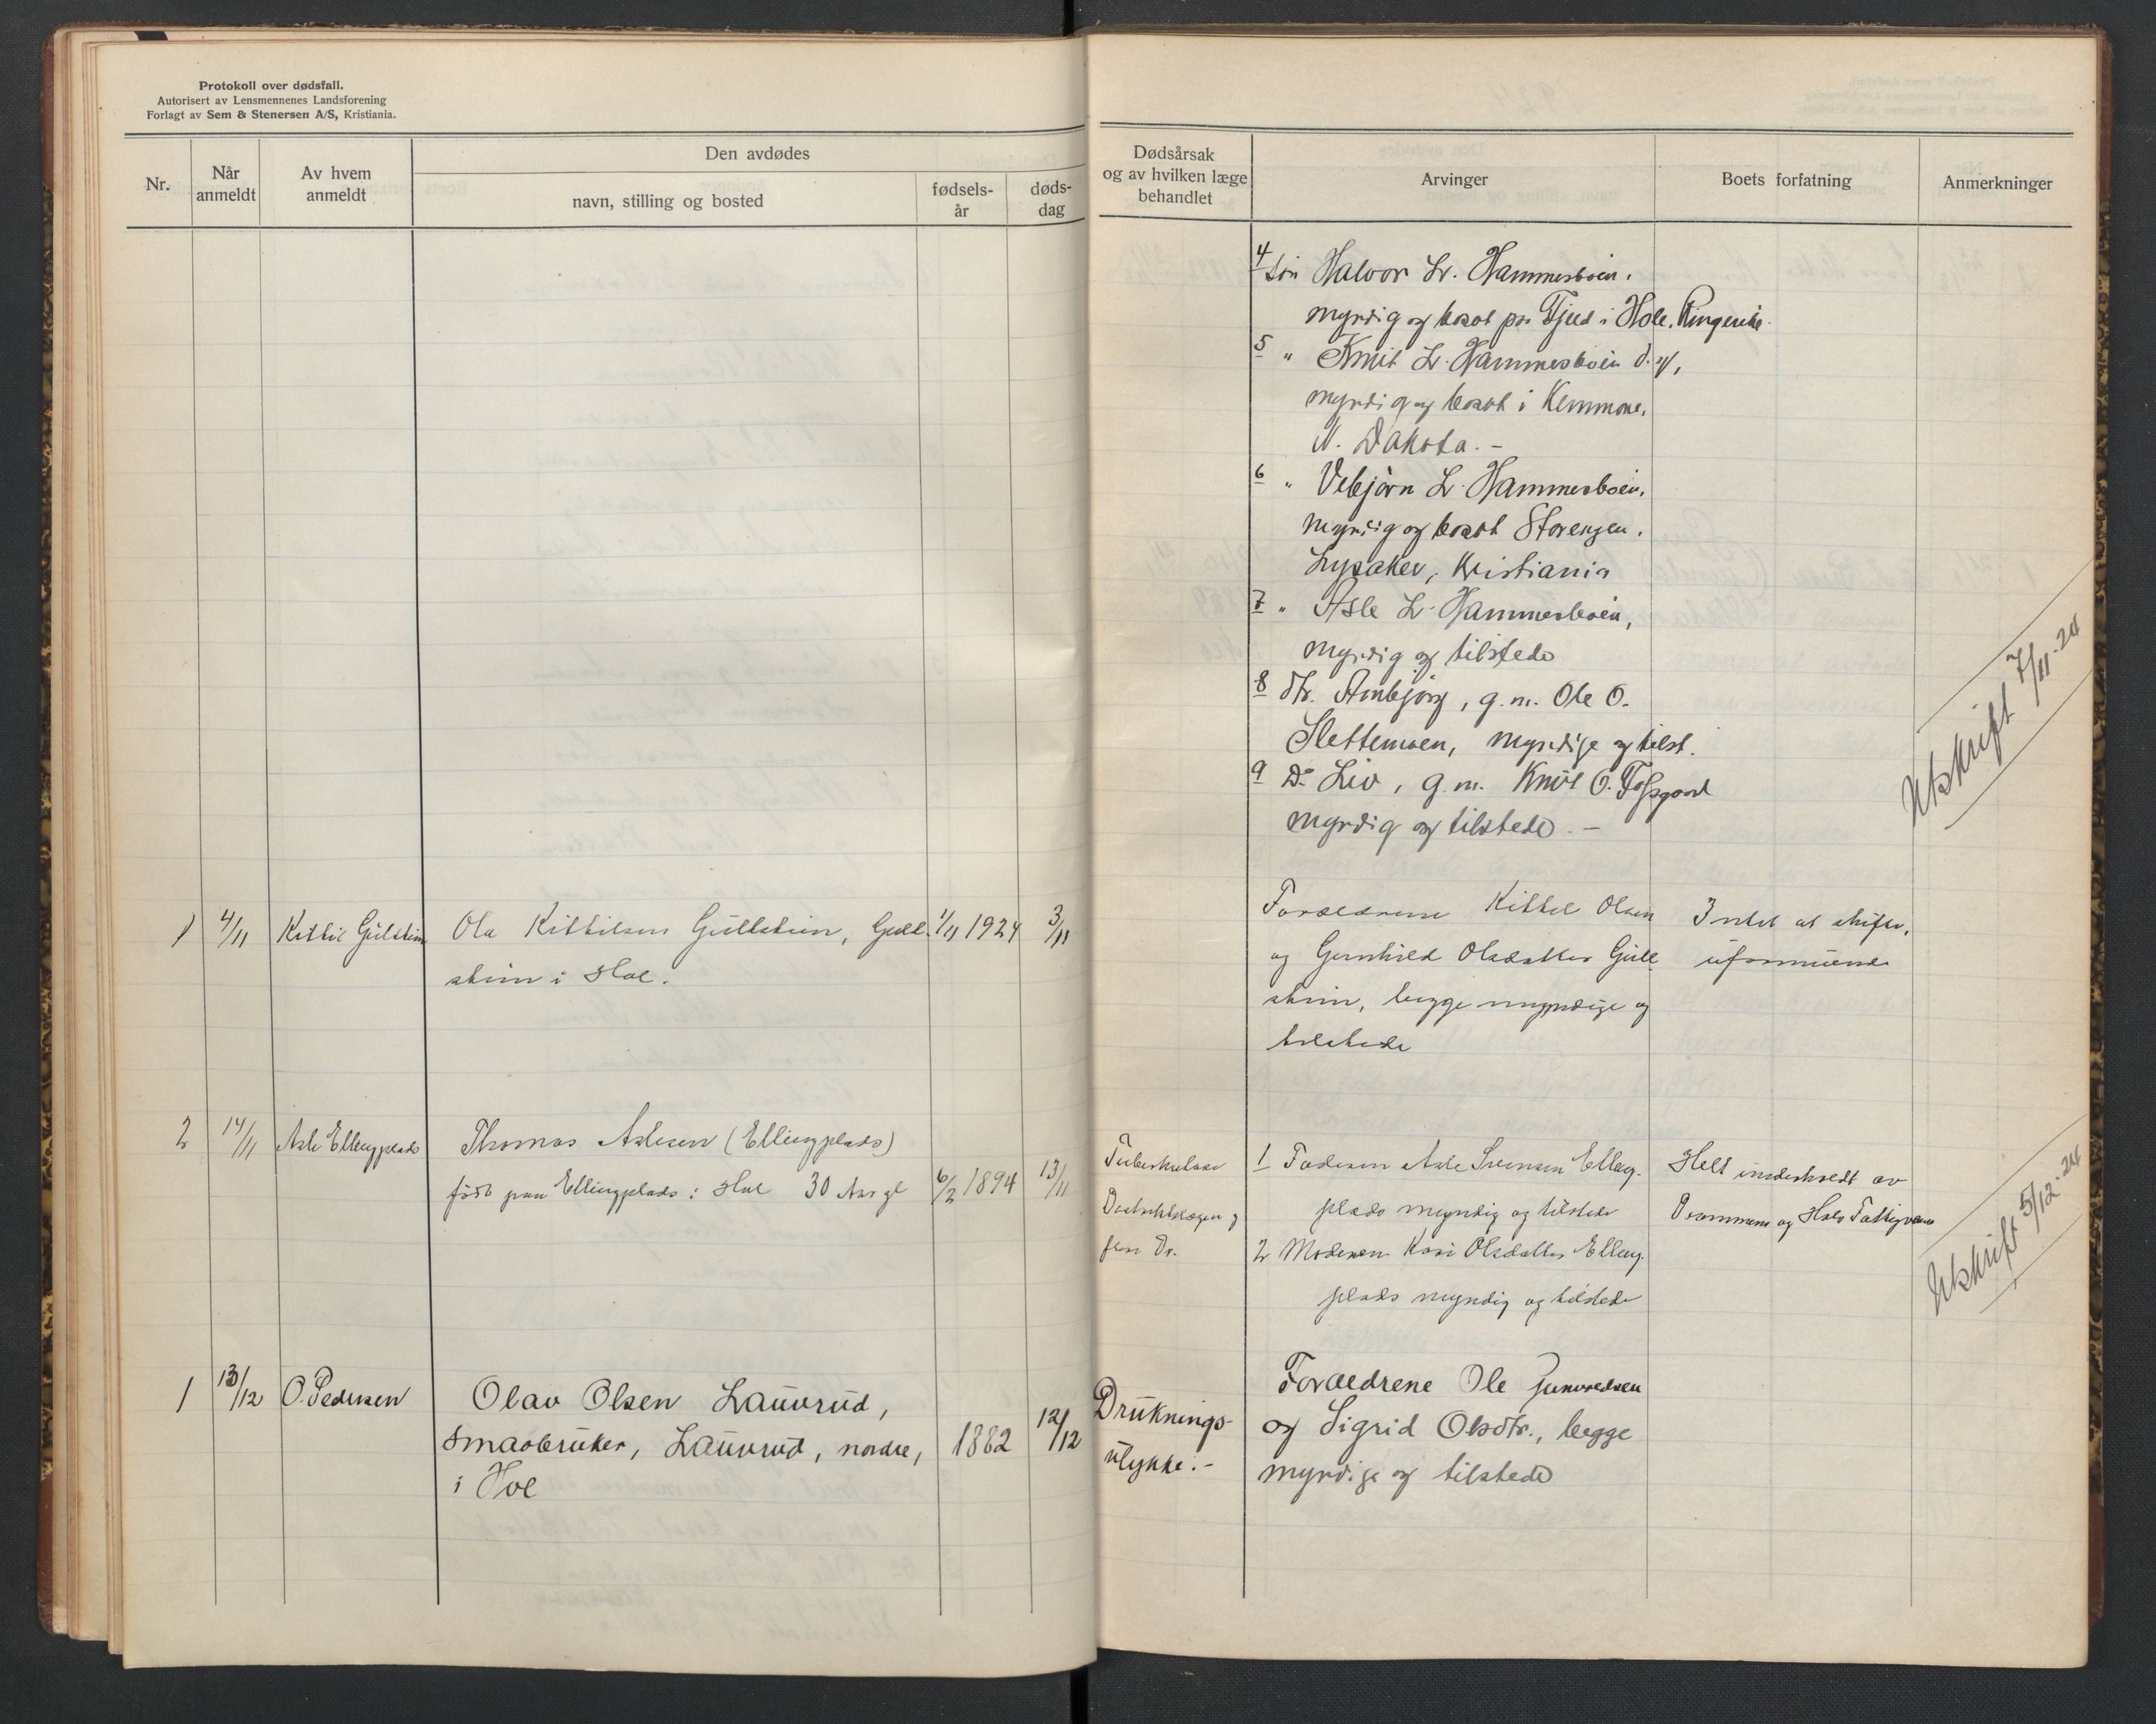 Protokoll over dødsfall.
Autorisert av Lensmennenes Landsforening
Forlagt av Sem & Stenersen A/S, Kristiania.
Nr.
Når anmeldt
Av hvem anmeldt
Den avdødes
navn, stilling og bosted
fødsels-år
døds-dag
Dødsårsak
og av hvilken læge
behandlet
Arvinger
Boets forfatning
Anmerkninger
4 Søn Halvor L. Hammersbøen.
myndig og bosat paa Fjeld i Hole, Ringerike.
5 " Knut L. Hammersbøen d. y,
myndig og bosat i
N. Dakota. -
6 " Vebjörn L. Hammersbøen,
myndig og bosat Storengen.
Lysaker, Kristiania
7 " Asle L. Hammersbøen,
myndig og tilstede
8 dtr. Ambjørg, g.m. Ole O.
Slettemoen, myndige og tilst.
9 Do Liv, g.m. Knut O. Fossgaard
myndig og tilstede. -
Utskrift 7/11-24
1 4/11 Kittil Gulstein
Ola Kittilsen Gullstein, Gull-
stein i Hol.
1/11 1924 3/11
Forældrene Kittel Olsen
og Gunhild Olsdatter Gull
stein, begge myndige og
tilstede
Intet at skifte.
uformuende
2 14/11 Asle Ellingplads
Thomas Aslesen (Ellingplads)
født paa Ellingplads i Hol 30 Aar gl
6/2 1894 13/11
Tuberkulose
Dr.
1 Faderen Asle Svensen Elling-
plads myndig og tilstede
2 Moderen Kari Olsdatter Elling-
plads myndig og tilstede
Helt underholdt av
Drammens og Hols Fattigvæsen
Utskrift 5/12-24
1 13/12 O. Pedersen
Olav Olsen Lauvrud,
smaabruker, Lauvrud, nordre,
i Hol
1882 12/12
Druknings-
ulykke. -
Forældrene Ole Gunvaldsen
og Sigrid Olsdtr., begge
myndige og tilstede